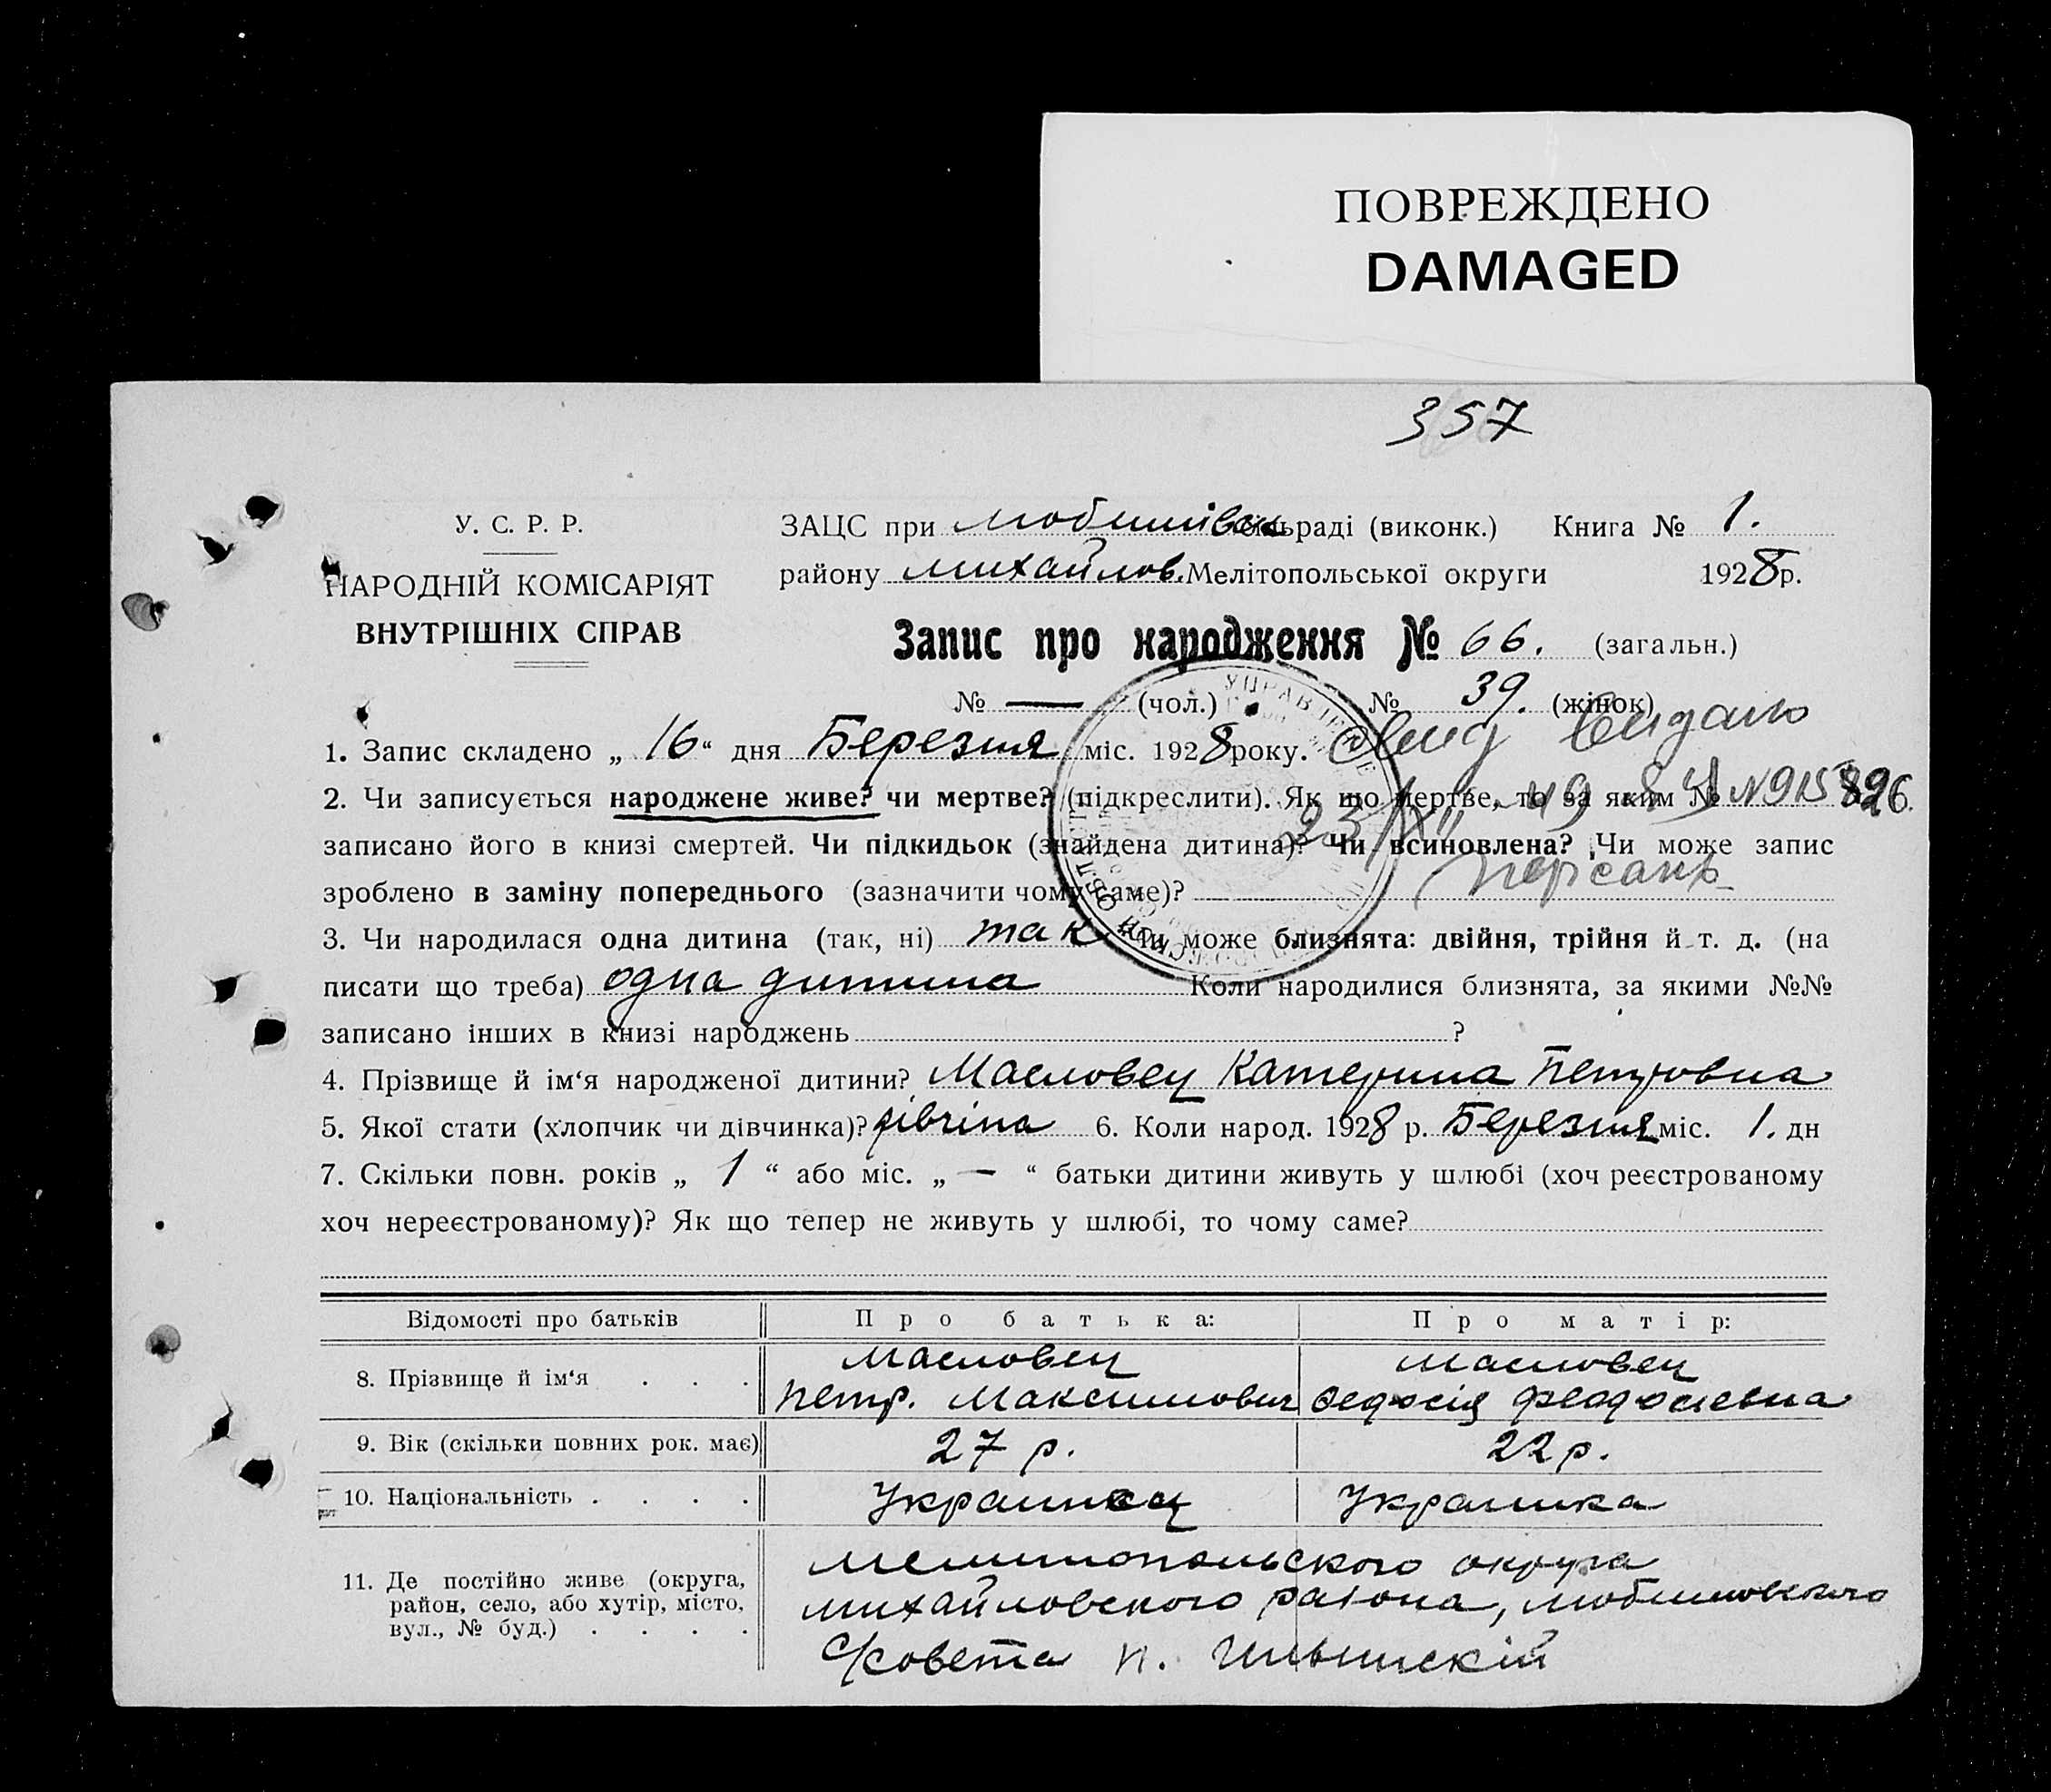 ПОВРЕЖДЕНО
DAMAGED
357
У. С. Р. Р.
НАРОДНІЙ КОМІСАРІЯТ
ВНУТРІШНІХ СПРАВ
ЗАЦС при Любимівск сільраді (виконк.) Книга № 1.
району Михайлов. Мелітопольської округи 1928 р.
Запис про народження № 66. (загальн.)
№ — (чол.) № 39. (жінок)
1. Запис складено „ 16 “ дня Березня міс. 1928 року.
видано
2. Чи записується народжене живе? чи мертве? (підкреслити). Як що мертве, то за яким №
записано його в книзі смертей. Чи підкидьок (знайдена дитина)? Чи всиновлена? Чи може запис
23/XII
зроблено в заміну попереднього (зазначити чому саме)?
3. Чи народилася одна дитина (так, ні) так Чи може близнята: двійня, трійня й т. д. (на
писати що треба) одна дитина Коли народилися близнята, за якими №№
записано інших в книзі народжень ?
4. Прізвище й ім‘я народженої дитини? Масловец Катерина Петровна
5. Якої стати (хлопчик чи дівчинка)? дівчіна 6. Коли народ. 1928 р. Березня міс. 1. дн
7. Скільки повн. років „ 1 “ або міс. „ — “ батьки дитини живуть у шлюбі (хоч реєстрованому
хоч нереєстрованому)? Як що тепер не живуть у шлюбі, то чому саме?
Відомості про батьків Про батька: Про матір:
8. Прізвище й ім‘я . . . Масловец Петр. Максимович Масловец Федосія Феодосиевна
9. Вік (скільки повних рок. має) 27 р. 22 р.
10. Національність . . . . Украинец Украинка
11. Де постійно живе (округа, район, село, або хутір, місто, вул., № буд.) . . . .
Мелитопольского округа
Михайловского района, Любимовского
с/совета п. Ильинский